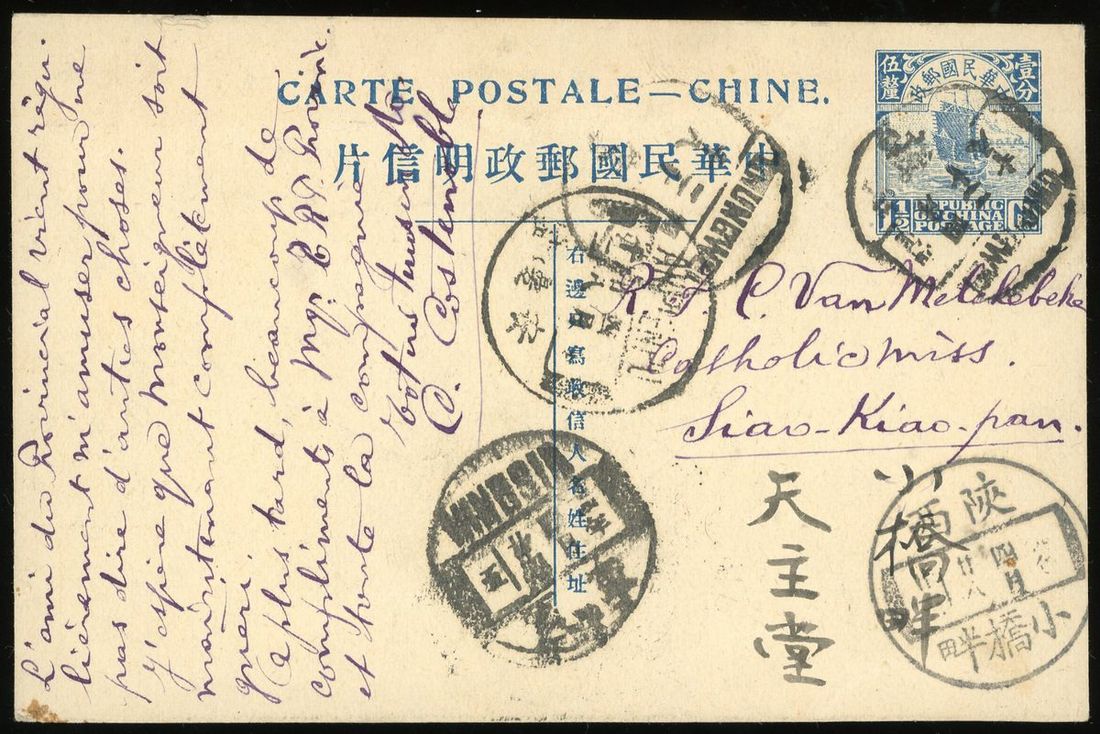 CARTE POSTALE—CHINE.
中華民國郵政明信片
中華民國郵政
壹分
伍釐
REPUBLIC
OF CHINA
POSTAGE
1½
右邊只寫收信人名姓住址
R. J. C. Van Melckebeke
Catholic miss.
Siao-Kiao-pan.
小橋畔
天主堂
陝西
四月
廿八
小橋畔
NINGSIA
L'ami du Provincial vient régu-
lièrement m'amuser pour ne
pas dire d'autres choses.
J'espère que Monseigneur soit
maintenant complètement
guéri.
A plus tard, beaucoup de
compliments à Mgr, P. Province
et toute la compagnie
C. Costenoble